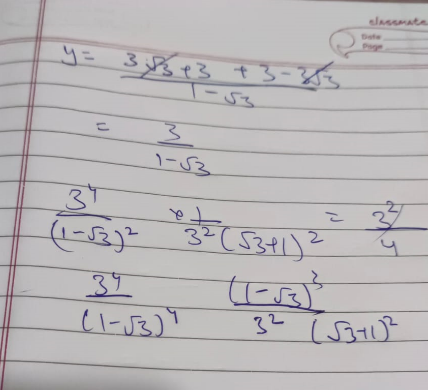 classmate
Date
Page
y = (3√3 + 3 + 3 - 3√3) / (1-√3)
= 3 / (1-√3)
3^4 / (1-√3)^2 × 1 / (3^2 (√3+1)^2) = 3^2 / 4
3^4 / (1-√3)^4 (1-√3)^3 / (3^2 (√3+1)^2)